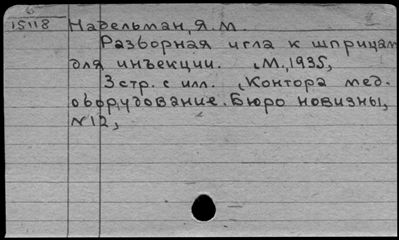 б
15118 Надельман, Я.М.
Разборная игла к шприцам
для инъекции. М., 1935,
3 стр. с илл. (Контора мед.
оборудование. Бюро новизны,
N12,